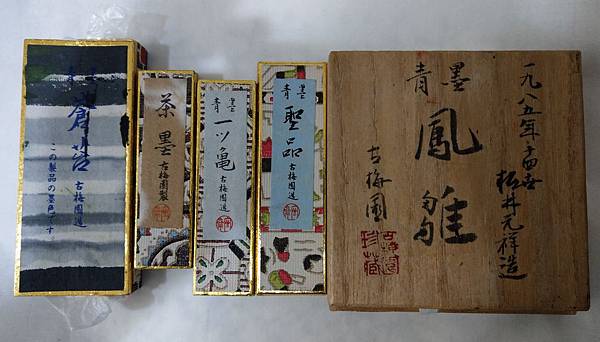 蒼苔
古梅園造
この製品の墨色です
茶墨
古梅園製
青墨
一ツ亀
古梅園造
青墨
聖品
古梅園造
一九八五年 松井元祥造
青墨
鳳雛
古梅園
古梅園
珍藏